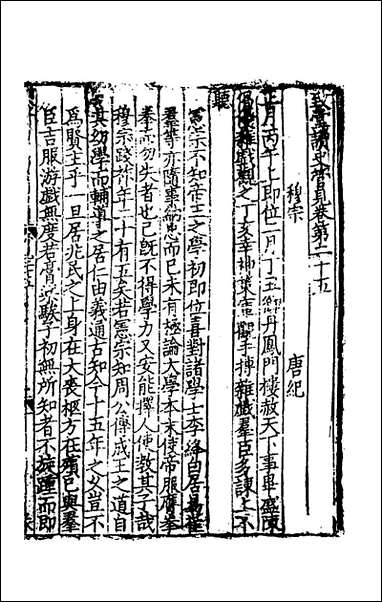 致堂讀史管見卷第二十五
穆宗　唐紀
正月丙午上即位二月丁丑御丹鳳門樓赦天下事畢盛陳
倡優雜戲觀之丁亥幸神策軍觀手搏雜戲羣臣多諫上不
聽
憲宗不知帝王之學初即位喜對諸學士李絳白居易崔
羣等亦隨事納忠而已未有極論大學本末使帝服膺拳
拳而勿失者也已既不得學力又安能擇人使教其子哉
穆宗踐祚年二十有五矣若憲宗知周公傅成王之道自
其幼學而輔導之居仁由義通古知今十五年之久豈不
爲賢主乎一旦居兆民之上身在大喪柩方在殯已與羣
臣吉服游戲無度若膏粱騃子初無所知者不旋踵而即